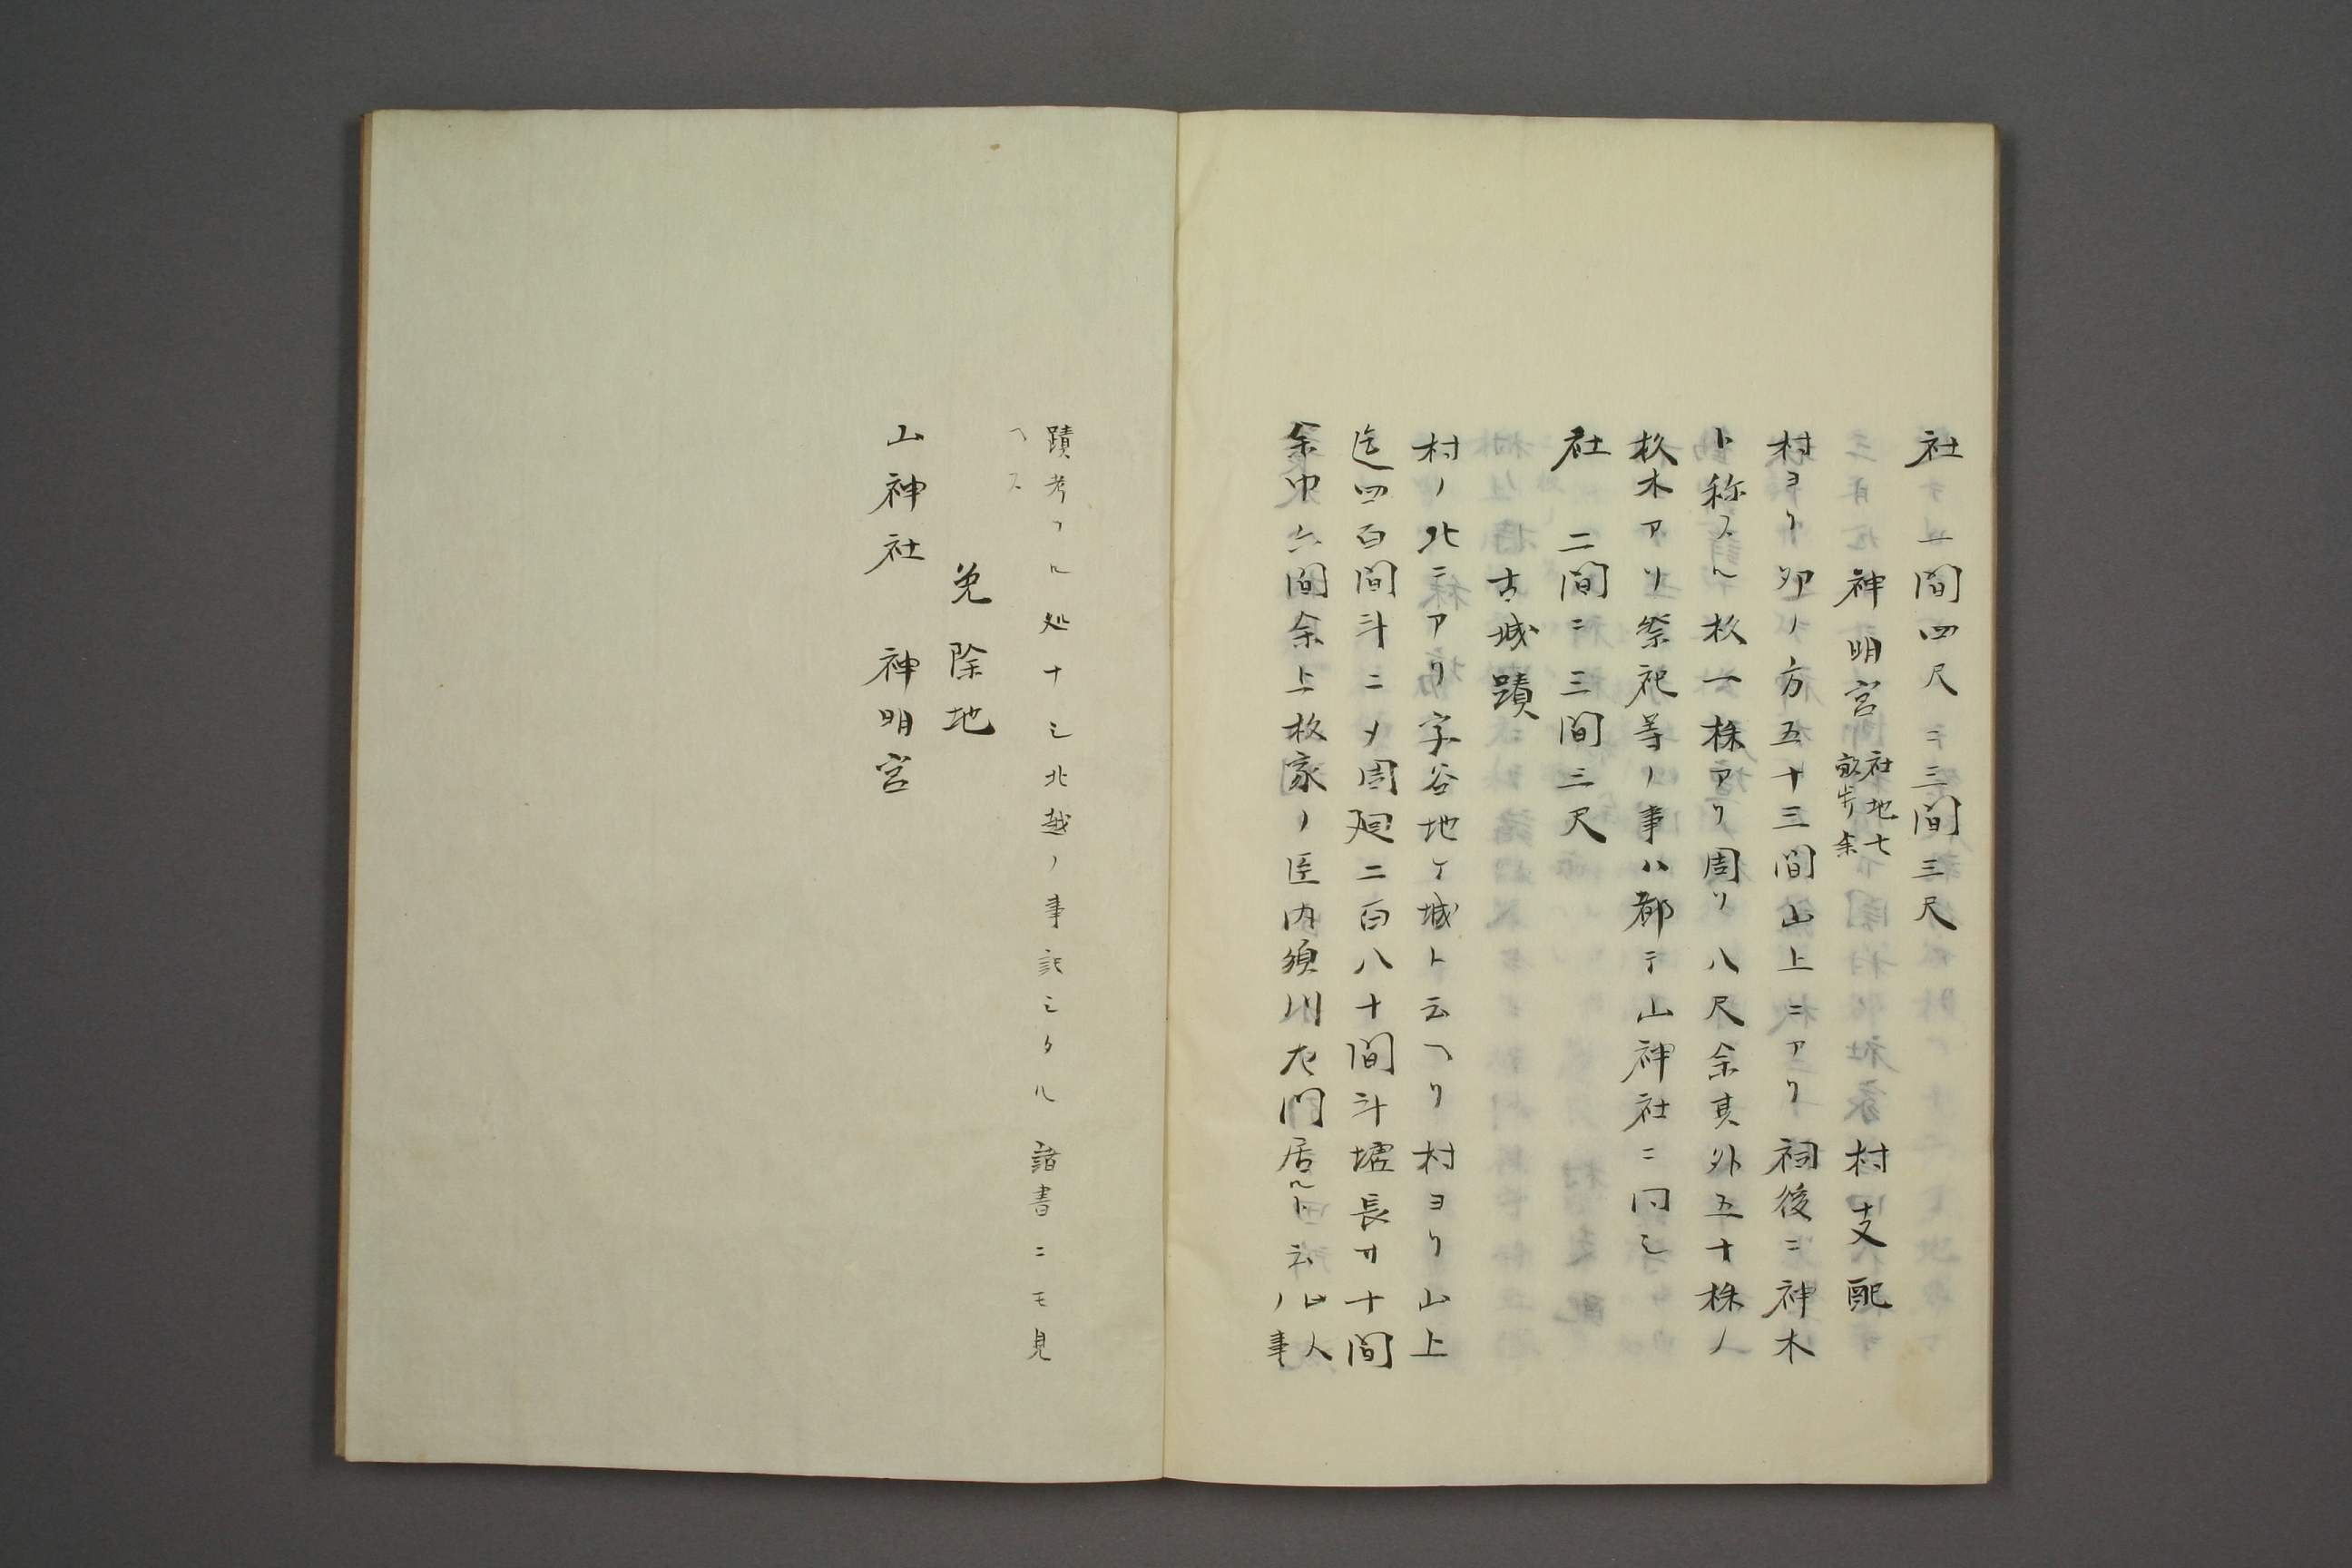 社 二間四尺ニ三間三尺
神明宮 社地七畝歩余 村支配
村ヨリ卯ノ方五十三間山上ニアリ祠後ニ神木
ト称スル杦一株アリ周リ八尺余其外五十株ノ
杦木アリ祭祀等ノ事ハ都テ山神社ニ同シ
社 二間ニ三間三尺
古城蹟
村ノ北ニアリ字谷地ケ城ト云ヘリ村ヨリ山上
迄四百間斗ニメ周廻二百八十間斗壚長サ十間
余巾六間余上杦家ノ臣内須川左門居ルト云此人ノ事
蹟考フル処ナシ北越ノ事記シタル諸書ニモ見
ヘス
免除地
山神社 神明宮